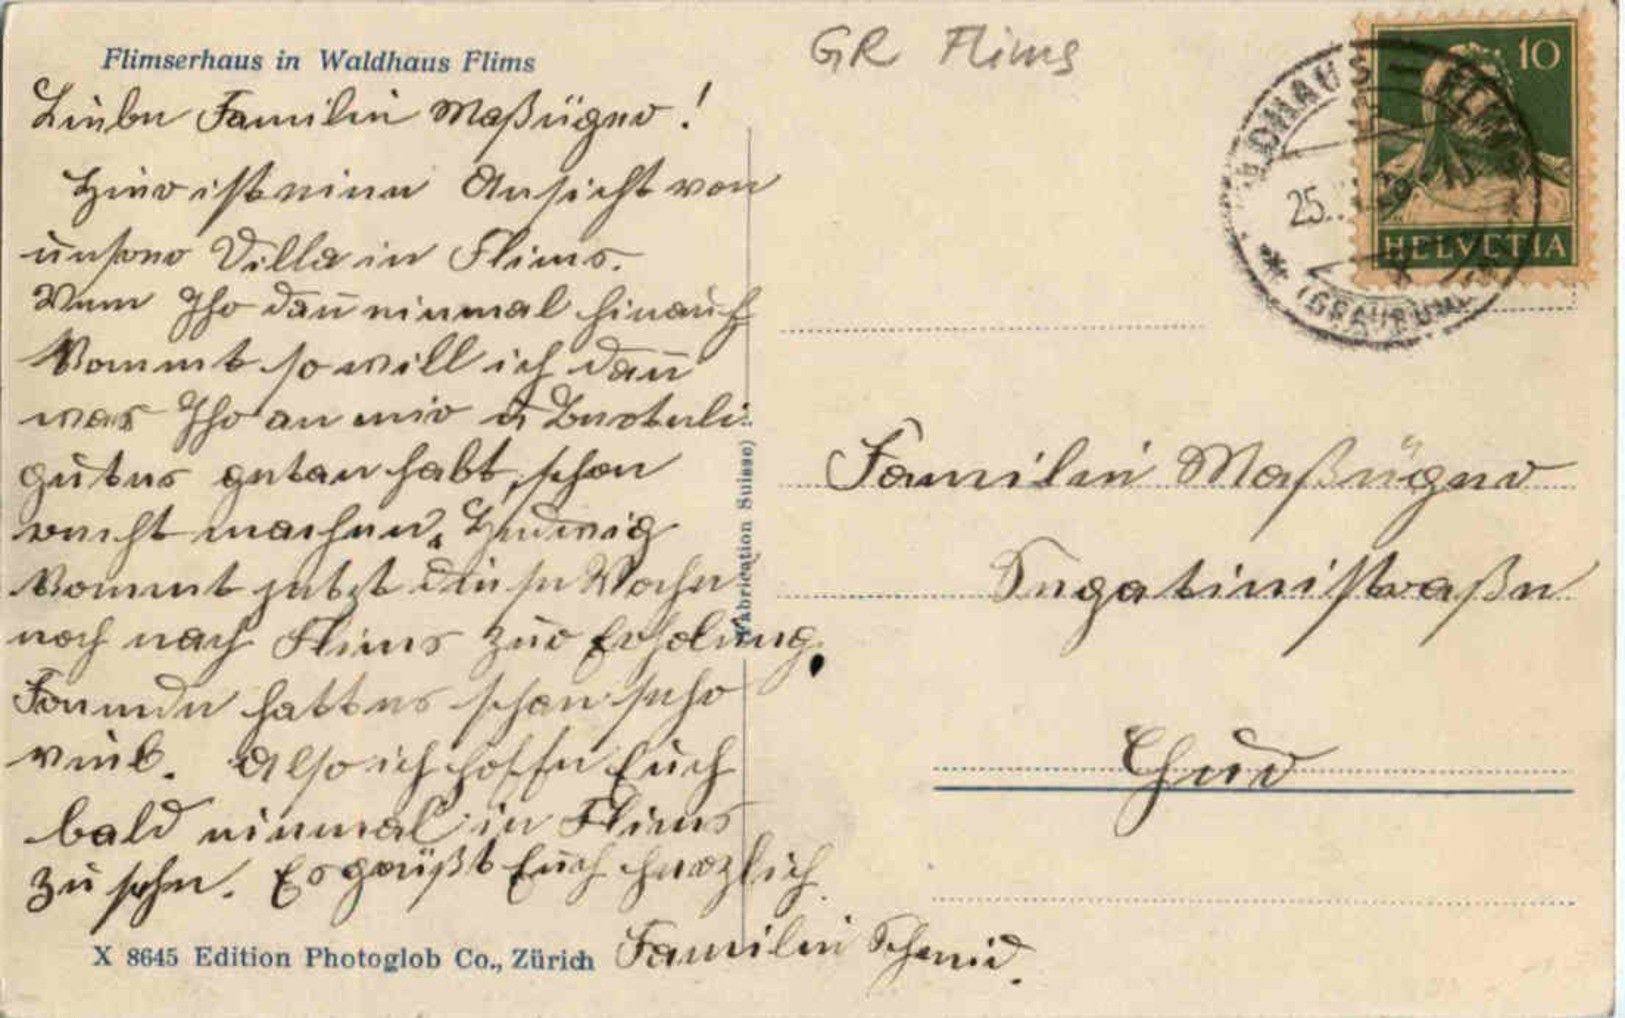 GR Flims
Flimserhaus in Waldhaus Flims
Liebe Familie Maßüger!
Hier ist eine Ansicht von
unserer Villa in Flims.
Wenn Ihr dann einmal hinauf
kommt so will ich dann
was Ihr an mir u.
gutes getan habt, schon
recht machen. Hedwig
kommt jetzt diese Woche
noch nach Flims zur Erholung.
Fremde hatt es schon sehr
viel. Also ich hoffe Euch
bald einmal in Flims
zu sehn. Es grüßt Euch herzlich
Familie Schmid.
X 8645 Edition Photoglob Co., Zürich
(Fabrication Suisse)
10
HELVETIA
WALDHAUS - FLIMS
25.
(GRAUBÜND
Familie Maßüger
Segatinistraße
Chur